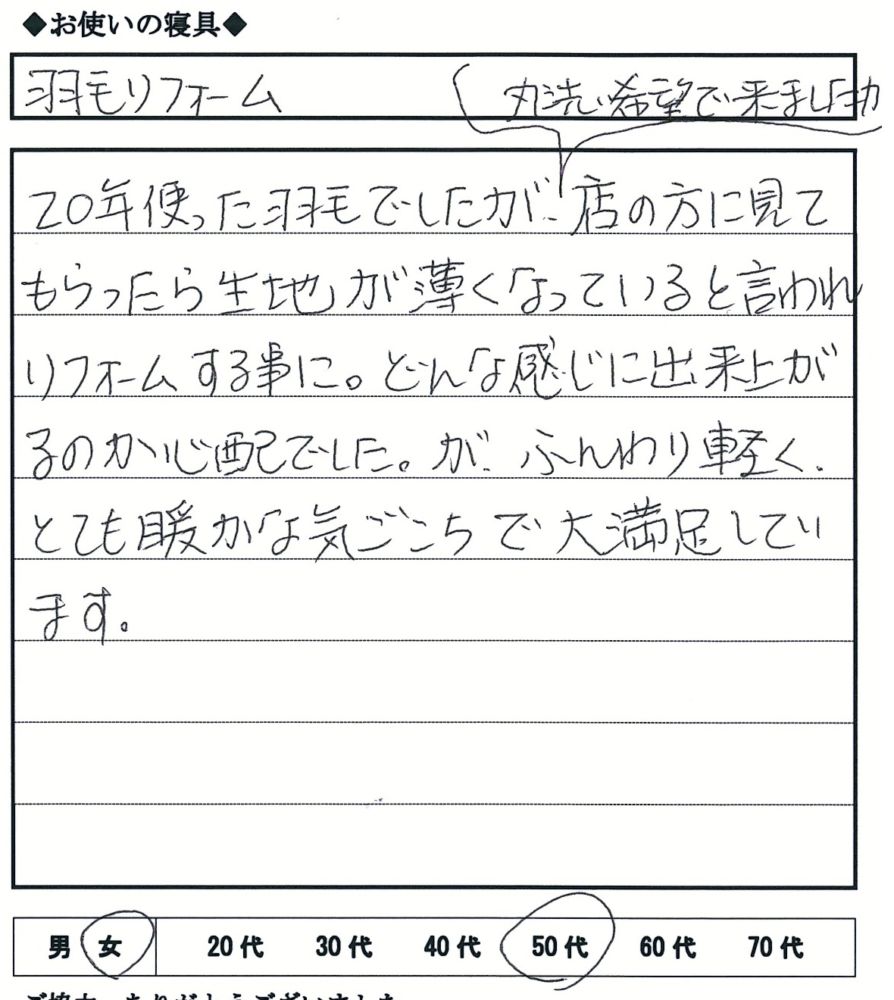 ◆お使いの寝具◆
羽毛リフォーム
丸洗い希望で来ましたが
20年使った羽毛でしたが、店の方に見て
もらったら生地が薄くなっていると言われ
リフォームする事に。どんな感じに出来上が
るのか心配でした。が、ふんわり軽く、
とても暖かな気ごこちで大満足してい
ます。
男 女 20代 30代 40代 50代 60代 70代